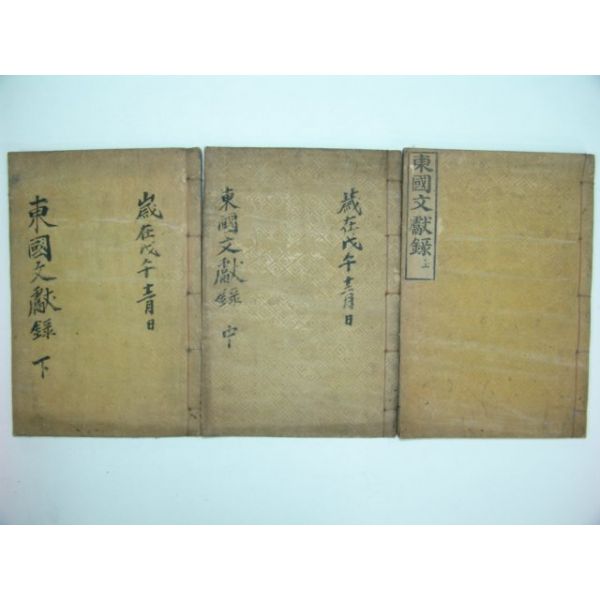 東國文獻錄上
歲在戊午十二月日
東國文獻錄 中
歲在戊午十二月日
東國文獻錄 下